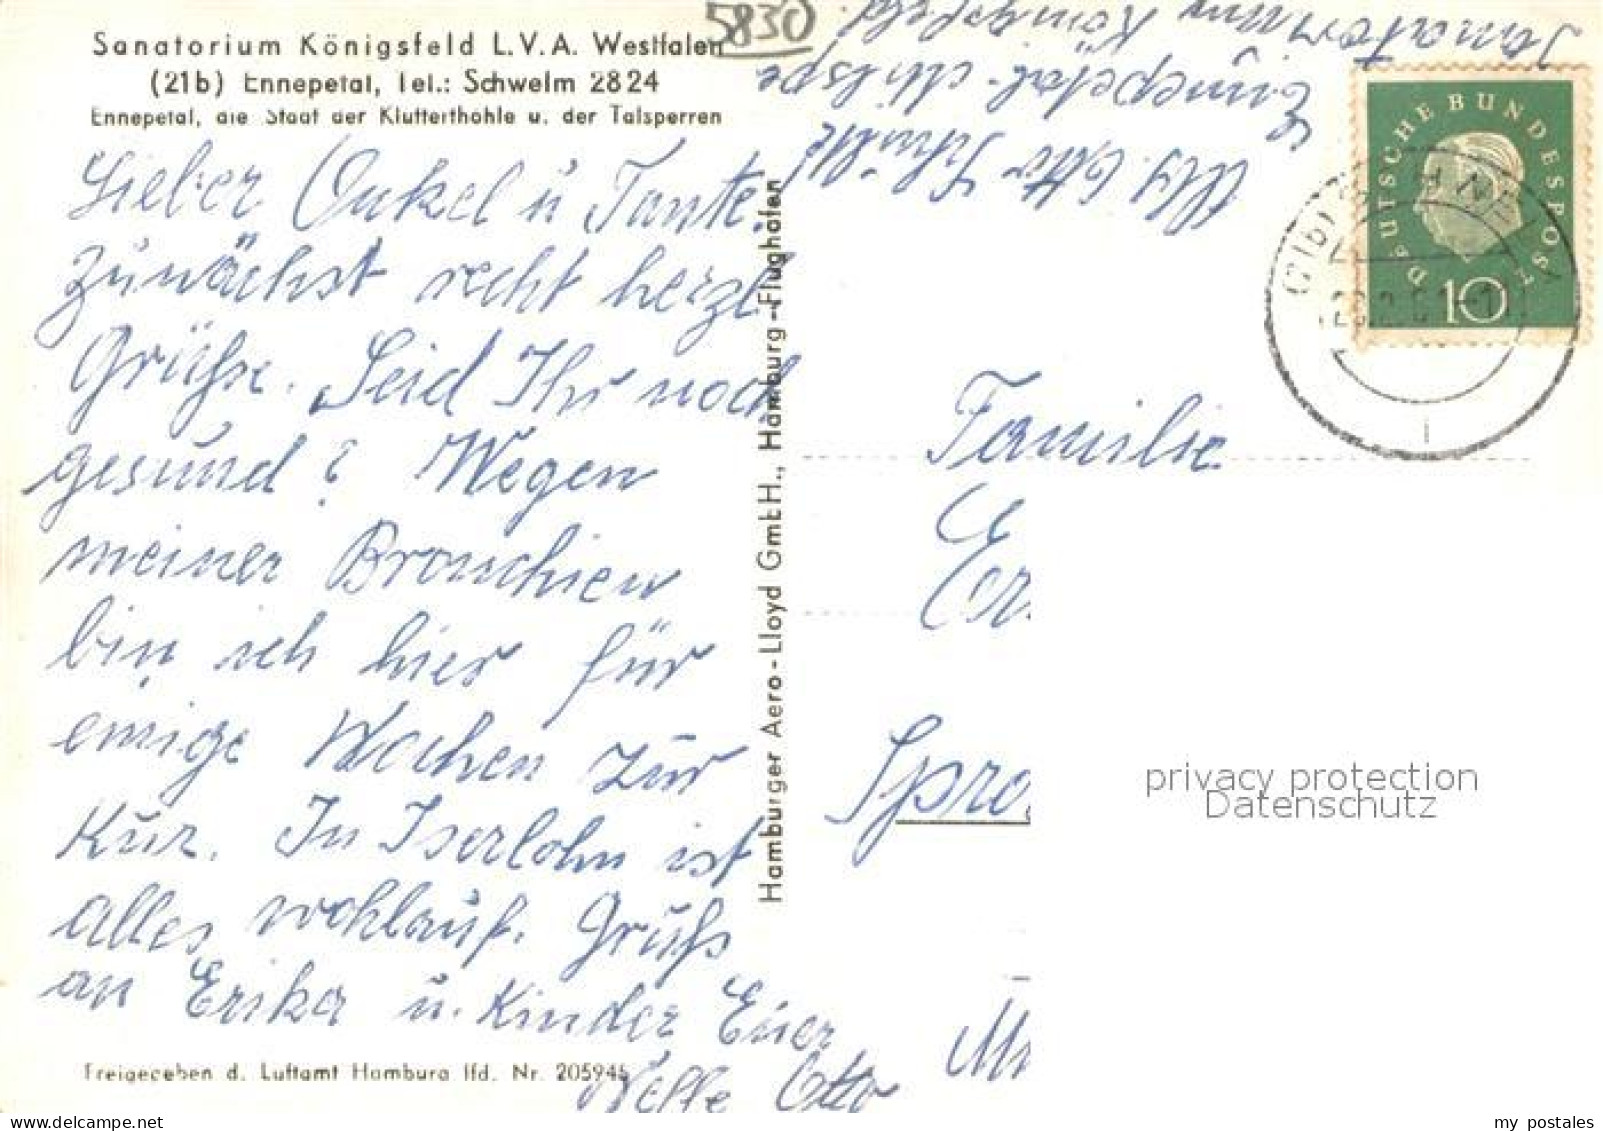 5830
Sanatorium Königsfeld L.V.A. Westfalen
(21b) Ennepetal, Tel.: Schwelm 2824
Ennepetal, die Stadt der Klutterthöhle u. der Talsperren
Lieber Onkel u Tante.
Zunächst recht herzl.
Grüße. Seid Ihr noch
gesund? Wegen
meiner Bronchien
bin ich hier für
einige Wochen zur
Kur. In Iserlohn ist
alles wohlauf. Gruß
an Erika u. Kinder Euer
Neffe Otto
Freigegeben d. Luftamt Hamburg lfd. Nr. 205945
Hamburger Aero-Lloyd GmbH., Hamburg-Flughafen
Otto
Ennepetal-Milspe
Sanatorium Königsfeld
DEUTSCHE BUNDESPOST
10
Familie
Spro
privacy protection
Datenschutz
my postales